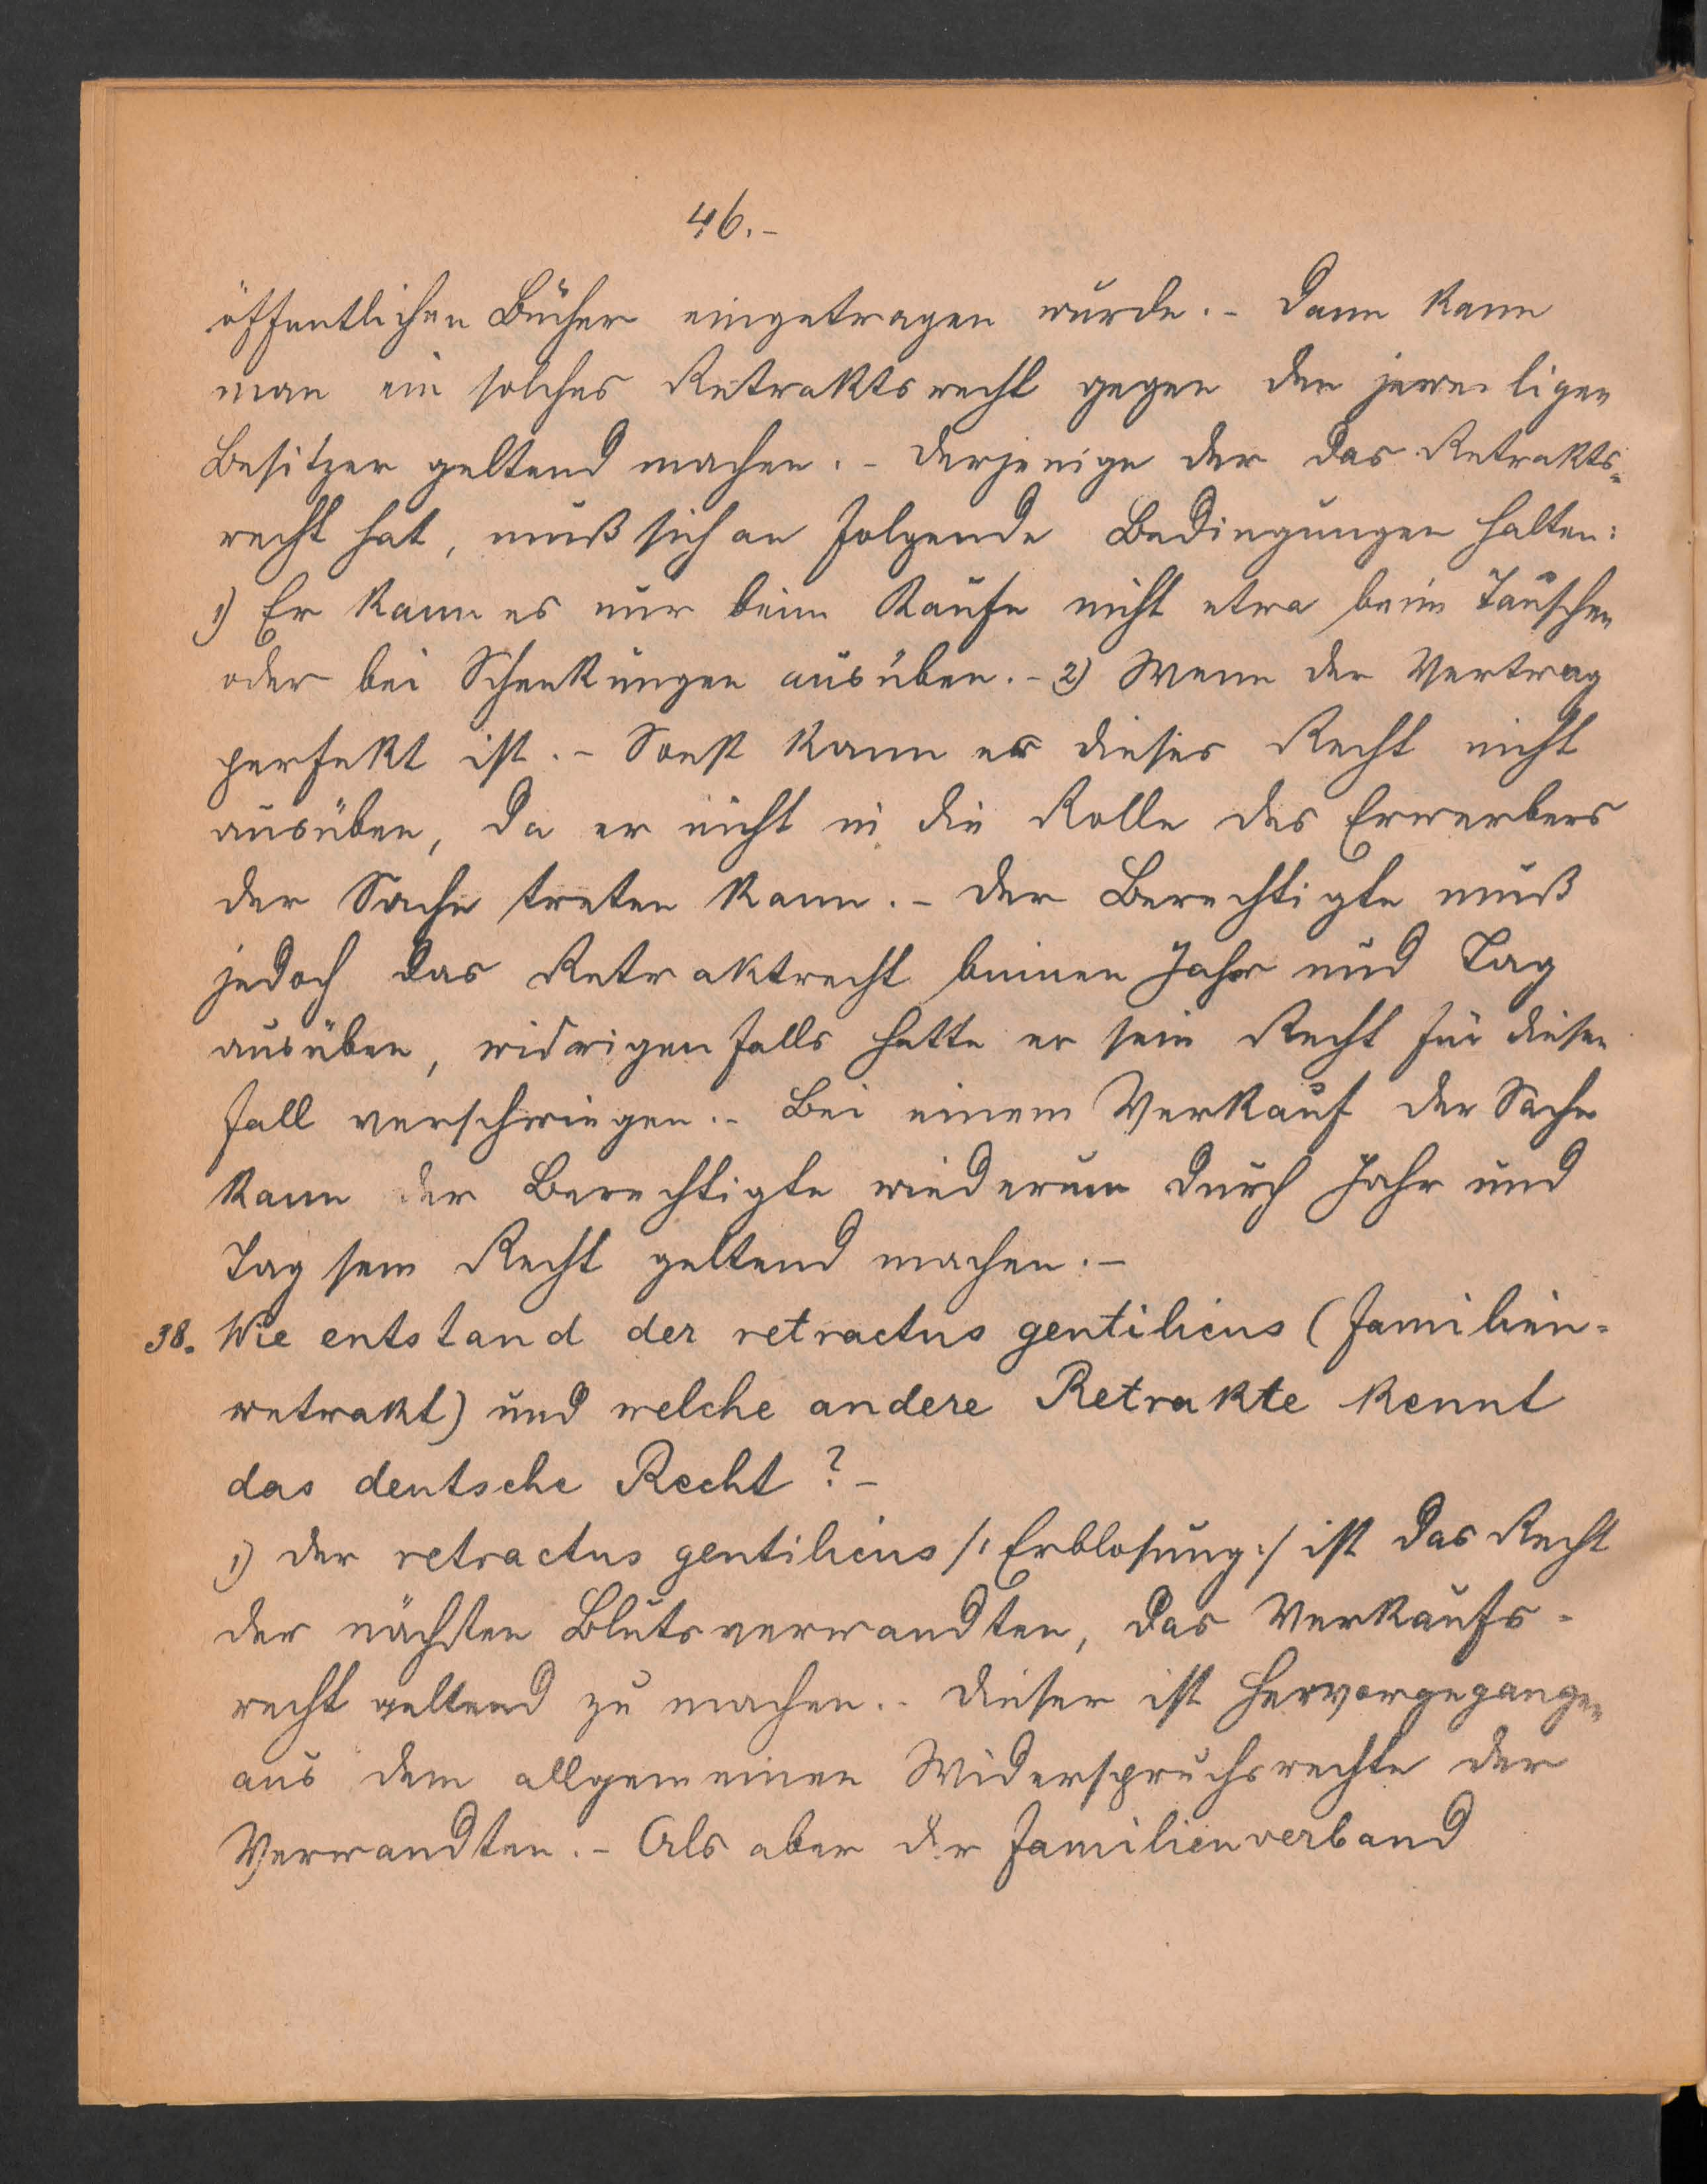 46.-
öffentlichen Bücher eingetragen wurde.- Dann kann
man ein solches Retraktsrecht gegen den jeweiligen
Besitzer geltend machen.- Derjenige der das Retrakts-
recht hat, muß sich an folgende Bedingungen halten:
1) Er kann es nur beim Kaufe nicht etwa beim Tauschen
oder bei Schenkungen ausüben.- 2) Wenn der Vertrag
perfekt ist.- Sonst kann er dieses Recht nicht
ausüben, da er nicht in die Rolle des Erwerbers
der Sache treten kann.- Der Berechtigte muß
jedoch das Retraktrecht binnen Jahr und Tag
ausüben, widrigenfalls hatte er sein Recht für diesen
Fall verschwiegen.- Bei einem Verkauf der Sache
kann der Berechtigte wiederum durch Jahr und
Tag sein Recht geltend machen.-
38. Wie entstand der retractus gentilicius (Familien-
retrakt) und welche andere Retrakte kennt
das deutsche Recht?-
1) Der retractus gentilicius /:Erblosung:/ ist das Recht
der nächsten Blutsverwandten, das Verkaufs-
recht geltend zu machen.- Dieser ist hervorgegangen
aus dem allgemeinen Widerspruchsrechte der
Verwandten.- Als aber der Familienverband